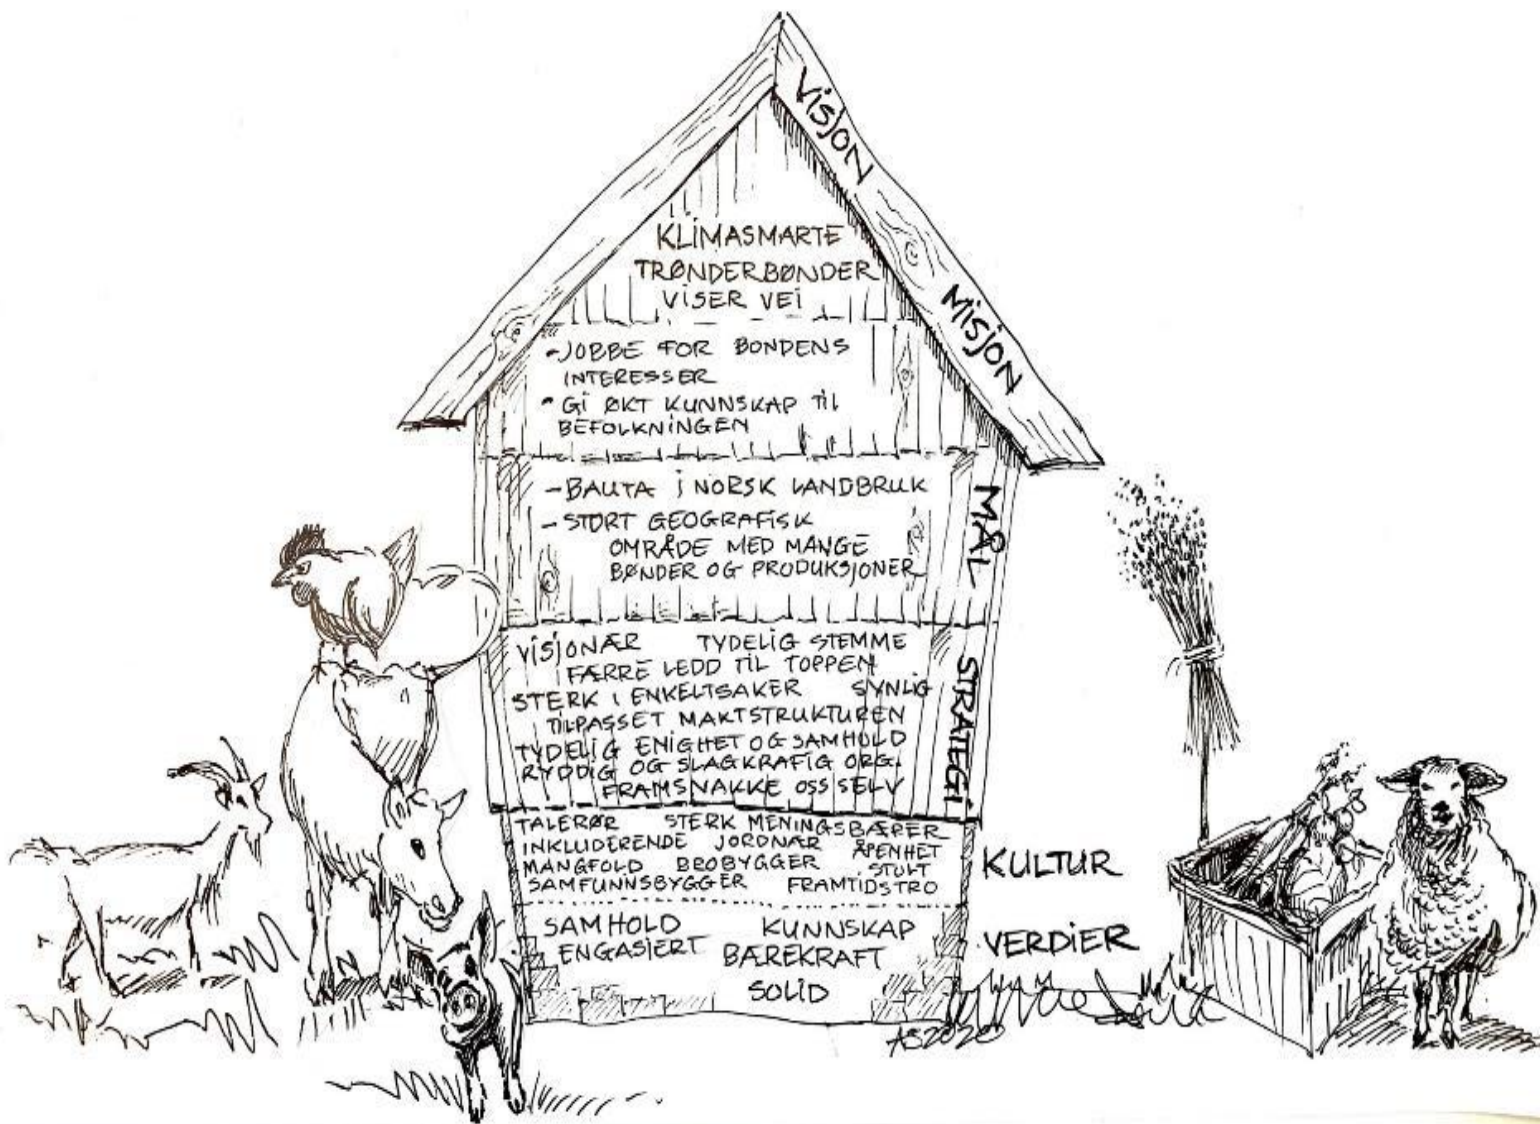 VISJON
KLIMASMARTE
TRØNDERBØNDER
VISER VEI
MISJON
- JOBBE FOR BONDENS
INTERESSER
- GI ØKT KUNNSKAP TIL
BEFOLKNINGEN
MÅL
- BAUTA I NORSK LANDBRUK
- STORT GEOGRAFISK
OMRÅDE MED MANGE
BØNDER OG PRODUKSJONER
STRATEGI
VISJONÆR TYDELIG STEMME
FÆRRE LEDD TIL TOPPEN
STERK I ENKELTSAKER SYNLIG
TILPASSET MAKTSTRUKTUREN
TYDELIG ENIGHET OG SAMHOLD
RYDDIG OG SLAGKRAFIG ORG.
FRAMSNAKKE OSS SELV
KULTUR
TALERØR STERK MENINGSBÆRER
INKLUDERENDE JORDNÆR ÅPENHET
MANGFOLD BROBYGGER STOLT
SAMFUNNSBYGGER FRAMTIDSTRO
VERDIER
SAMHOLD KUNNSKAP
ENGASJERT BÆREKRAFT
SOLID
AS2020